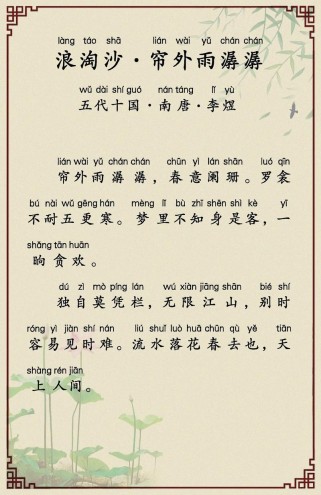 làng táo shā lián wài yǔ chán chán
浪淘沙·帘外雨潺潺
wǔ dài shí guó nán táng lǐ yù
五代十国·南唐·李煜
lián wài yǔ chán chán chūn yì lán shān luó qīn
帘外雨潺潺，春意阑珊。罗衾
bú nài wǔ gēng hán mèng lǐ bù zhī shēn shì kè yī
不耐五更寒。梦里不知身是客，一
shǎng tān huān
晌贪欢。
dú zì mò píng lán wú xiàn jiāng shān bié shí
独自莫凭栏，无限江山，别时
róng yì jiàn shí nán liú shuǐ luò huā chūn qù yě tiān
容易见时难。流水落花春去也，天
shàng rén jiān
上人间。